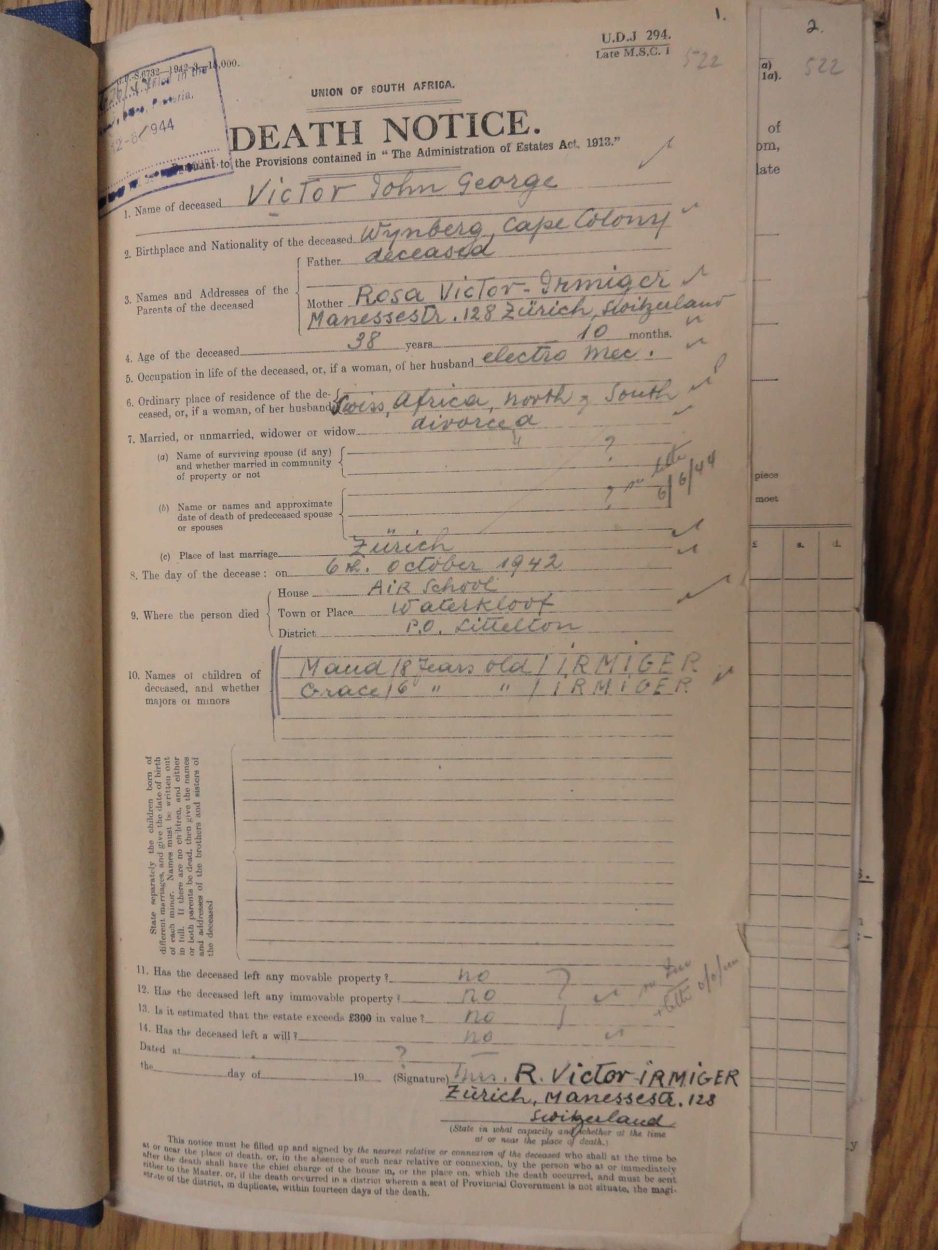 1.
2.
U.D.J 294.
Late M.S.C. 1
522
522
6732—1942-3—15,000.
1944
UNION OF SOUTH AFRICA.
DEATH NOTICE.
Pursuant to the Provisions contained in "The Administration of Estates Act, 1913."
1. Name of deceased Victor John George
2. Birthplace and Nationality of the deceased Wynberg, Cape Colony
3. Names and Addresses of the Parents of the deceased
Father deceased
Mother Rosa Victor-Irmiger
Manessestr. 128 Zürich, Switzerland
4. Age of the deceased 38 years 10 months.
5. Occupation in life of the deceased, or, if a woman, of her husband electro mec.
6. Ordinary place of residence of the de-
ceased, or, if a woman, of her husband Swiss, Africa, north & South
7. Married, or unmarried, widower or widow divorced
(a) Name of surviving spouse (if any)
and whether married in community
of property or not
?
(b) Name or names and approximate
date of death of predeceased spouse
or spouses
?
6/6/44
(c) Place of last marriage Zürich
8. The day of the decease: on 6th. october 1942
9. Where the person died
House AiR School
Town or Place Waterkloof
District P.O. Littelton
10. Names of children of
deceased, and whether
majors or minors
Maud / 8 Years old / IRMiGER
Grace / 6 " " / IRMiGER
State separately the children born of
different marriages, and give the date of birth
of each minor. Names must be written out
in full. If there are no children, and either
or both parents be dead, then give the names
and addresses of the brothers and sisters of
the deceased
11. Has the deceased left any movable property? no
12. Has the deceased left any immovable property? no
13. Is it estimated that the estate exceeds £300 in value? no
14. Has the deceased left a will? no
Dated at ?
the day of 19 (Signature) Mrs. R. Victor-IRMIGER
Zürich, Manessestr. 128
Switzerland
(State in what capacity and whether at the time
at or near the place of death.)
This notice must be filled up and signed by the nearest relative or connexion of the deceased who shall at the time be
at or near the place of death, or, in the absence of such near relative or connexion, by the person who at or immediately
after the death shall have the chief charge of the house in, or the place on, which the death occurred, and must be sent
either to the Master, or, if the death occurred in a district wherein a seat of Provincial Government is not situate, the magi-
strate of the district, in duplicate, within fourteen days of the death.
a)
1a).
of
om,
late
piece
moet
£ s. d.